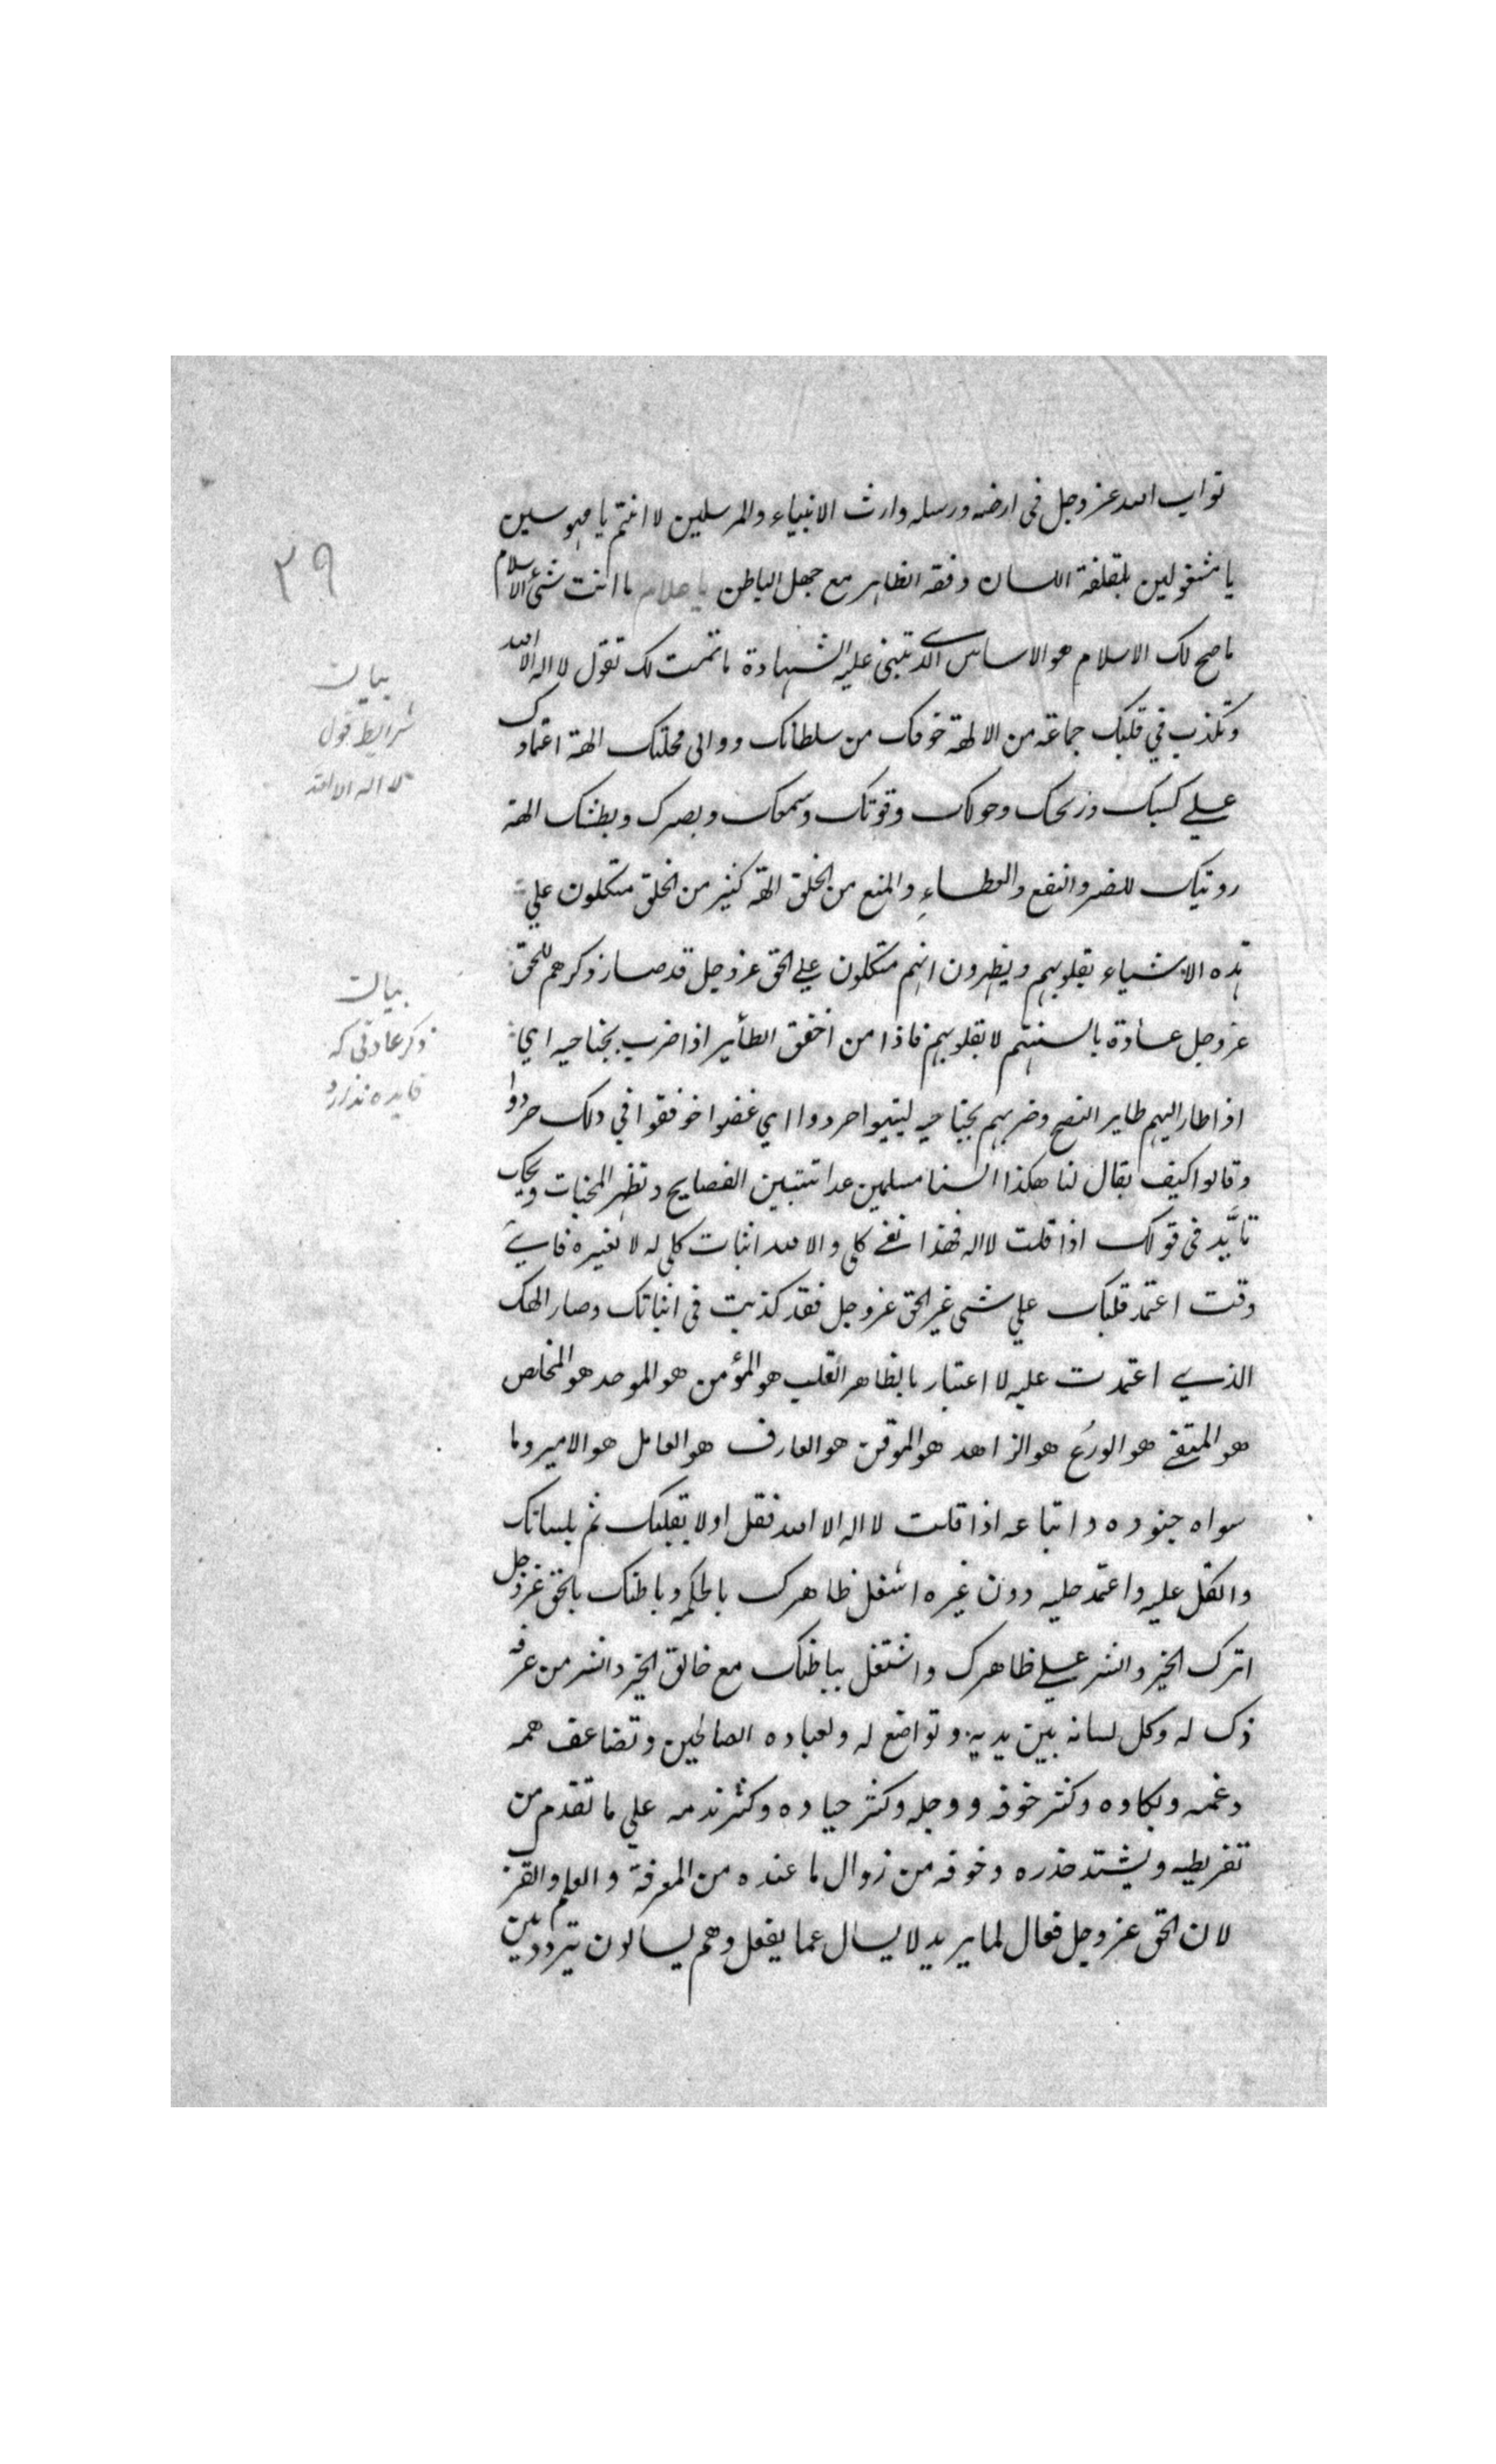 نواب الله عز وجل فى ارضه ورسله وارث الانبياء والمرسلين لا انتم يا مهوسين
يا مشغولين بلقلقة اللسان وفقه الظاهر مع جهل الباطن يا غلام ما انت شئ الاسلام
ما صح لك الاسلام هو الاساس الذي تبنى عليه الشهادة ما تمت لك تقول لا اله الا الله
وتكذب في قلبك جماعة من الالهة خوفك من سلطانك ووالى محلتك الهة اعتمادك
علي كسبك وربحك وحولك وقوتك وسمعك وبصرك وبطشك الهة
رويتك للضر والنفع والعطاء والمنع من الخلق الهة كثير من الخلق متكلون علي
هذه الاشياء بقلوبهم ويظهرون انهم متكلون علي الحق عز وجل قد صار ذكرهم للحق
عز وجل عادة بالسنتهم لا بقلوبهم فاذا من اخفق الطائير اذا ضرب بجناحيه اي
اذا طار اليهم طاير النصح وضربهم بجناحيه لينتبهوا حردوا اي غضبوا خوفقوا في ذلك حردوا
وقالوا كيف يقال لنا هكذا السنا مسلمين غدا تتبين الفضايح وتظهر المخبات ويحك
تأيَّد فى قولك اذا قلت لا اله فهذا نفي كلى والا الله اثبات كلى له لا لغيره فاي
وقت اعتمد قلبك علي شى غير الحق عز وجل فقد كذبت فى اثباتك وصار الهك
الذي اعتمدت عليه لا اعتبار بالظاهر القلب هو المؤمن هو الموحد هو المخلص
هو المتقي هو الورع هو الزاهد هو الموقن هو العارف هو العامل هو الامير وما
سواه جنوده واتباعه اذا قلت لا اله الا الله فقل اولا بقلبك ثم بلسانك
واتكل عليه واعتمد عليه دون غيره اشغل ظاهرك بالحكم وباطنك بالحق عز وجل
اترك الخير والشر علي ظاهرك واشتغل بباطنك مع خالق الخير والشر من عرفه
ذل له وكل لسانه بين يديه وتواضع له ولعباده الصالحين وتضاعف همه
وغمه وبكاوه وكثر خوفه ووجله وكثر حياوه وكثر ندمه علي ما تقدم من
تفريطه ويشتد حذره وخوفه من زوال ما عنده من المعرفة والعلم والقرب
لان الحق عز وجل فعال لما يريد لا يسال عما يفعل وهم يسالون يتردد بين
٣٩
بيان
شرايط قول
لا اله الا الله
بيان
ذكر عادتى كه
فايده ندارد